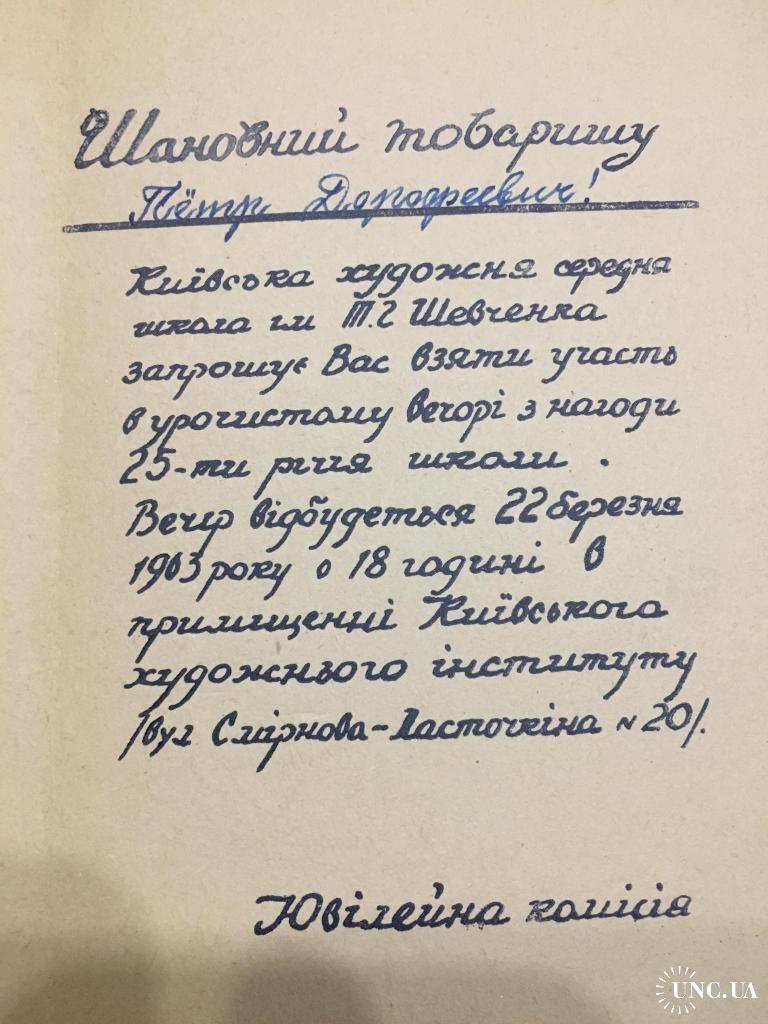 Шановний товаришу
Пётр Дорофеевич!
Київська художня середня
школа ім Т.Г Шевченка
запрошує Вас взяти участь
в урочистому вечорі з нагоди
25-ти річчя школи .
Вечір відбудеться 22 березня
1963 року о 18 годині в
приміщенні Київського
художнього інституту
/вул Смірнова-Ласточкіна №20/.
Ювілейна комісія
UNC.UA